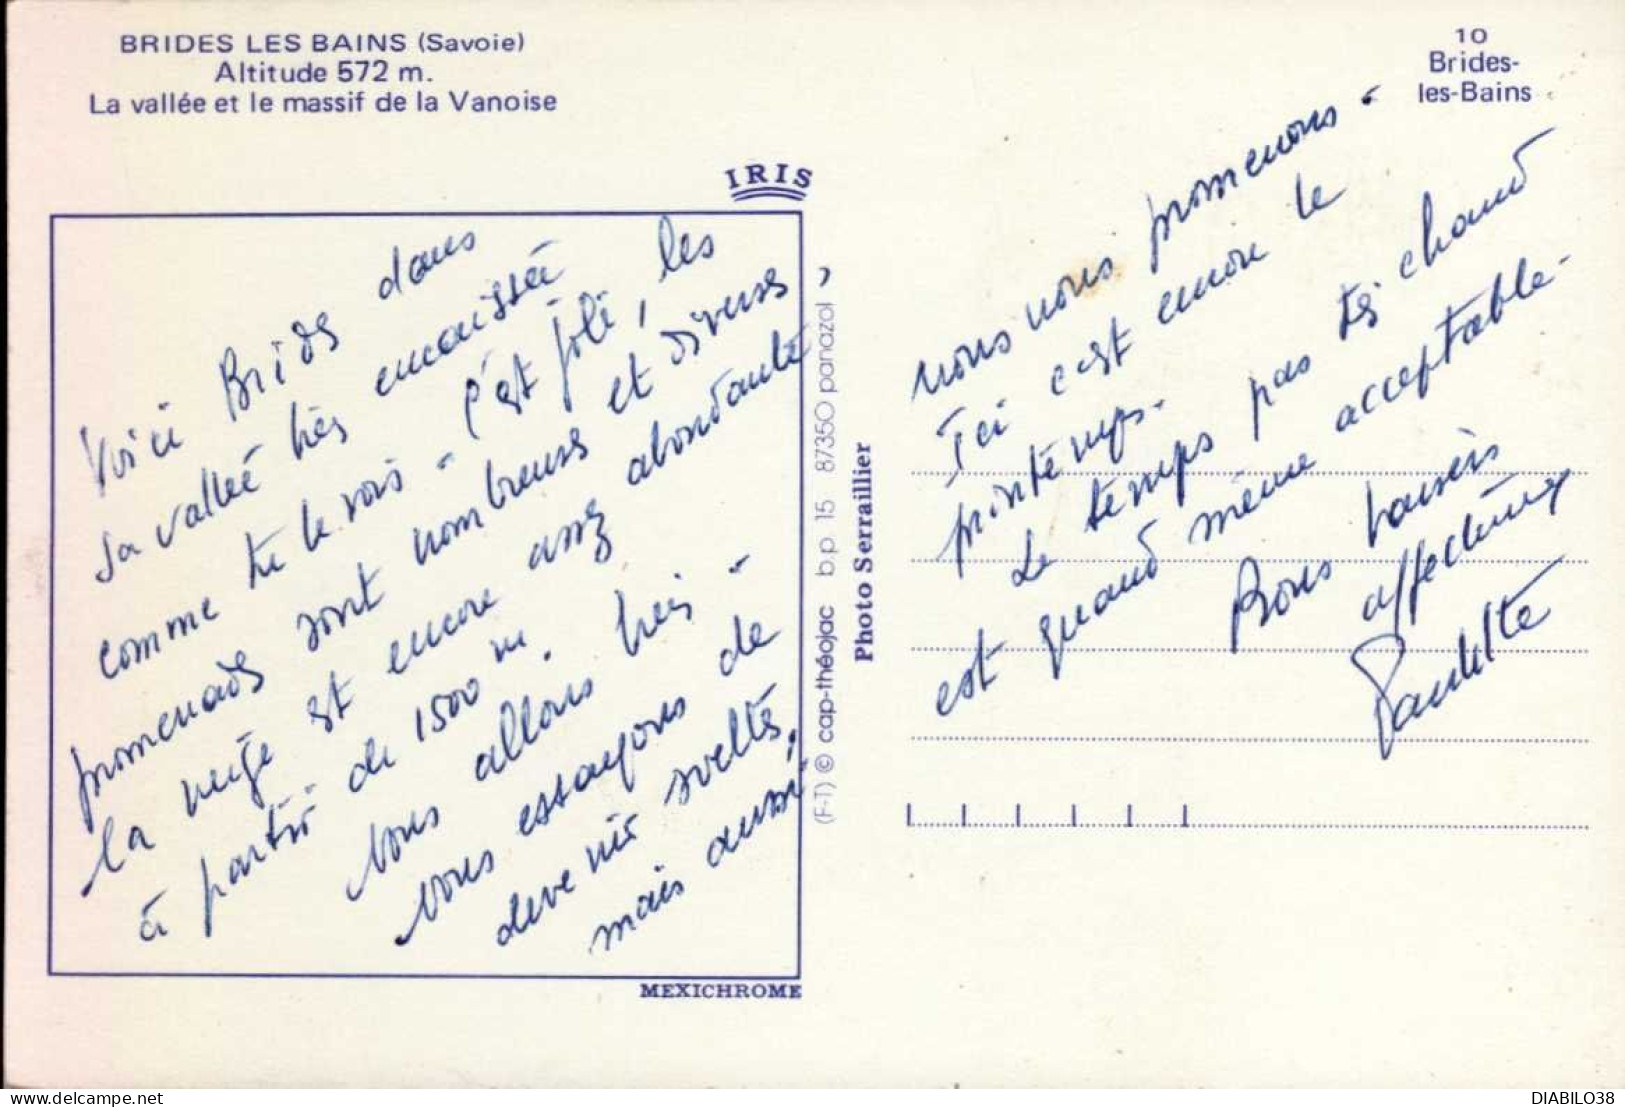 BRIDES LES BAINS (Savoie)
Altitude 572 m.
La vallée et le massif de la Vanoise
10
Brides-
les-Bains
IRIS
Voici Brides dans
sa vallée très encaissée
comme tu le vois - c'est joli, les
promenades sont nombreuses et diverses,
la neige est encore assez abondante
à partir de 1500 m.
Nous allons très -
nous essayons de
devenir sveltes,
mais aussi
MEXICHROME
(F-T) © cap-théojac b.p. 15 87350 panazol
Photo Serraillier
nous nous promenons -
Ici c'est encore le
printemps.
Le temps pas très chaud
est quand même acceptable -
Bons baisers
affectueux
Paulette
delcampe.net
DIABILO38